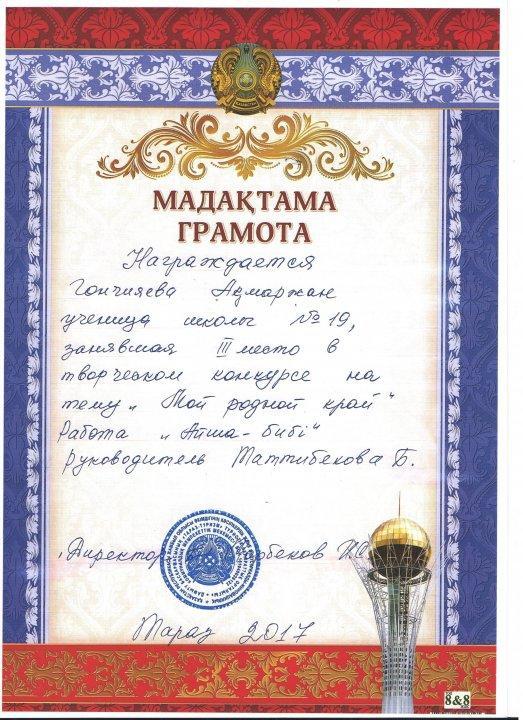 МАДАҚТАМА
ГРАМОТА
Награждается
Гончияева Ақмаржан
ученица школы №19,
занявшая III место в
творческом конкурсе на
тему „Мой родной край“
Работа „Айша-бибі“
Руководитель Таттибекова Б.
Директор
Тараз 2017
8&8